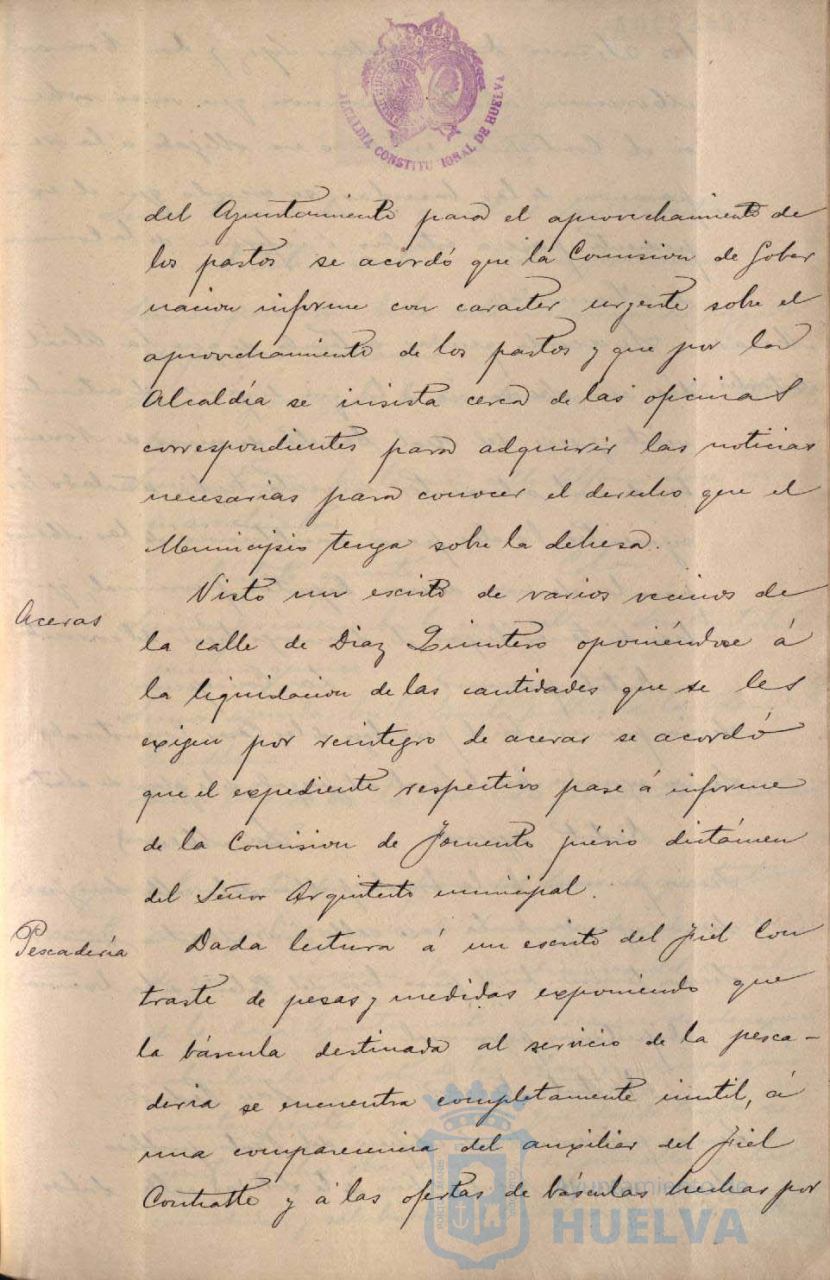 ALCALDIA CONSTITUCIONAL DE HUELVA
del Ayuntamiento para el aprovechamiento de
los pastos se acordó que la Comision de Gober
nacion informe con caracter urgente sobre el
aprovechamiento de los pastos y que por la
Alcaldía se insista cerca de las oficinas
correspondientes para adquirir las noticias
necesarias para conocer el derecho que el
Municipio tenga sobre la dehesa.
Aceras
Visto un escrito de varios vecinos de
la calle de Diaz Quintero oponiéndose á
la liquidacion de las cantidades que se les
exigen por reintegro de aceras se acordó
que el expediente respectivo pase á informe
de la Comision de Fomento prévio dictámen
del Señor Arquitecto municipal.
Pescadería
Dada lectura á un escrito del Fiel Con
traste de pesas y medidas exponiendo que
la báscula destinada al servicio de la pesca-
deria se encuentra completamente inutil, á
una comparecencia del auxiliar del Fiel
Contraste y á las ofertas de básculas hechas por
Ayuntamiento de
HUELVA